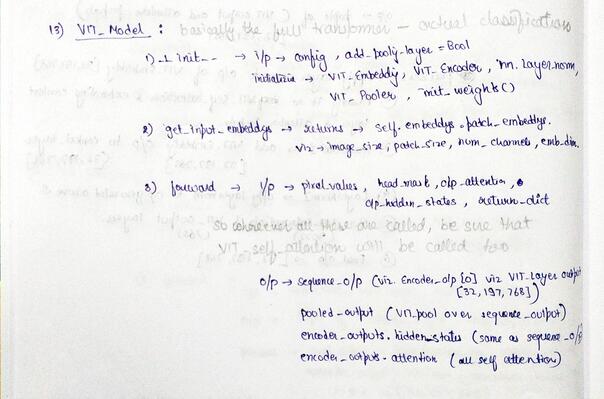 13) VIT_Model : basically the full transformer - actual classification
1) __init__ → i/p → config, add_pooling_layer = Bool
initialize → VIT_Embeddgs, VIT_Encoder, nn.Layer_norm,
VIT_Pooler, init_weights()
2) get_input_embeddgs → returns → self.embeddgs.patch_embeddgs.
viz → image_size, patch_size, num_channels, emb_dim.
3) forward → i/p → pixel_values, head_mask, o/p_attention,
o/p_hidden_states, return_dict
so whenever all these are called, be sure that
VIT_self_attention will be called too
o/p → sequence_o/p (viz. Encoder_o/p [0] viz VIT_Layer output
[32, 197, 768])
pooled_output (VIT_pool over sequence_output)
encoder_outputs.hidden_states (same as sequence_o/p)
encoder_outputs.attention (all self attention)